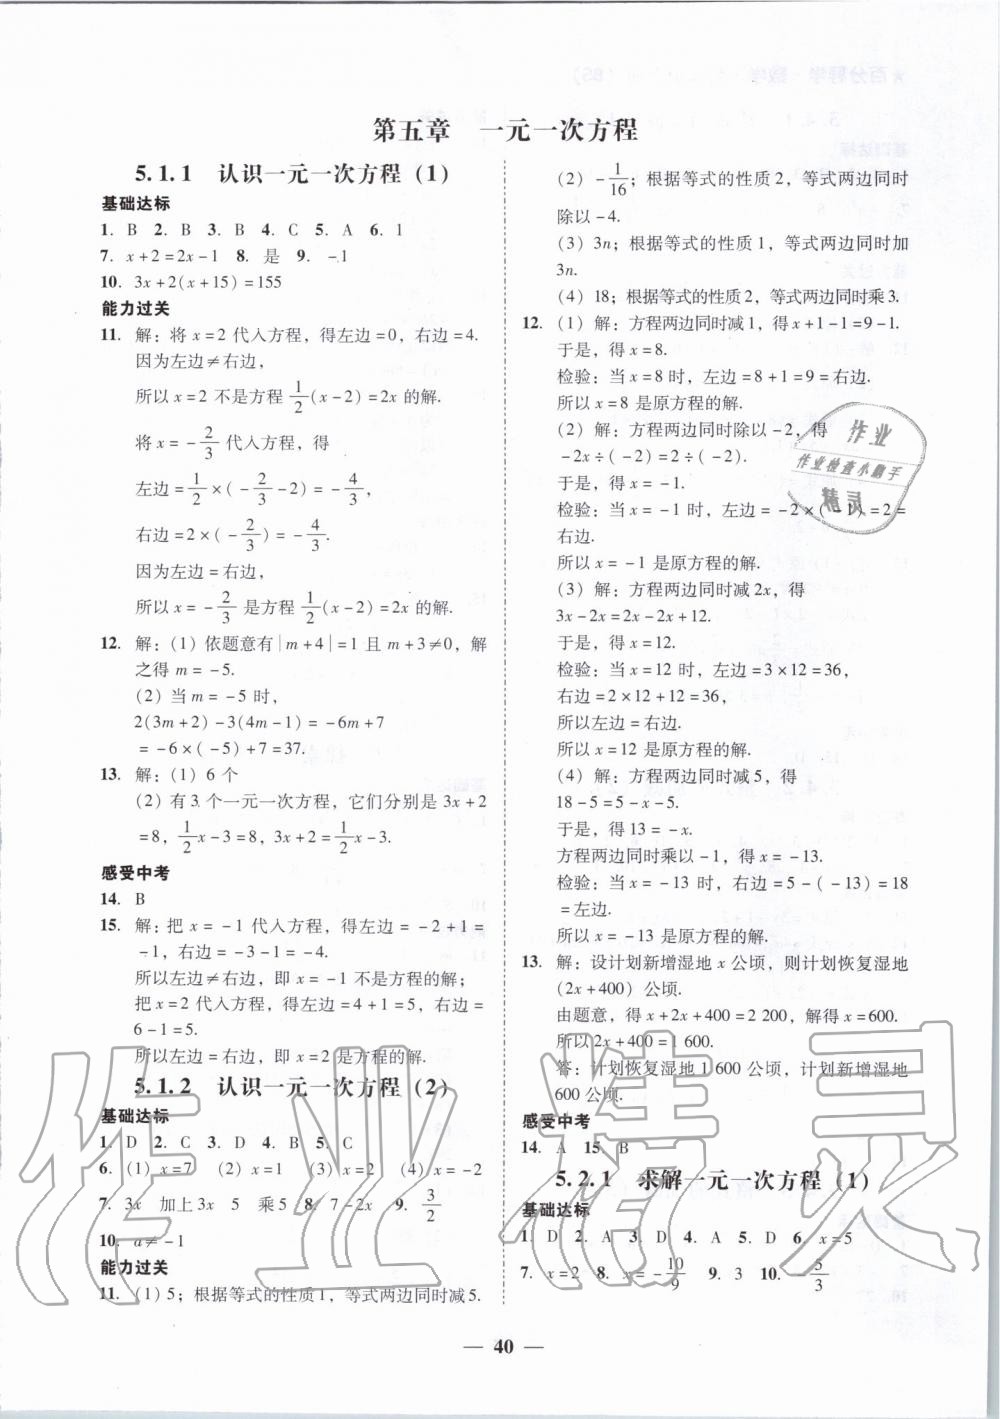 第五章 一元一次方程
5.1.1 认识一元一次方程(1)
基础达标
1. B 2. B 3. B 4. C 5. A 6. 1
7. x+2=2x-1 8. 是 9. -1
10. 3x+2(x+15)=155
能力过关
11. 解:将x=2代入方程,得左边=0,右边=4.
因为左边≠右边,
所以x=2不是方程1/2(x-2)=2x的解.
将x=-2/3代入方程,得
左边=1/2×(-2/3-2)=-4/3,
右边=2×(-2/3)=-4/3.
因为左边=右边,
所以x=-2/3是方程1/2(x-2)=2x的解.
12. 解:(1)依题意有|m+4|=1且m+3≠0,解
之得m=-5.
(2)当m=-5时,
2(3m+2)-3(4m-1)=-6m+7
=-6×(-5)+7=37.
13. 解:(1)6个
(2)有3个一元一次方程,它们分别是3x+2
=8,1/2x-3=8,3x+2=1/2x-3.
感受中考
14. B
15. 解:把x=-1代入方程,得左边=-2+1=
-1,右边=-3-1=-4.
所以左边≠右边,即x=-1不是方程的解;
把x=2代入方程,得左边=4+1=5,右边=
6-1=5.
所以左边=右边,即x=2是方程的解.
5.1.2 认识一元一次方程(2)
基础达标
1. D 2. C 3. D 4. B 5. C
6. (1)x=7 (2)x=1 (3)x=2 (4)x=-2
7. 3x 加上3x 5 乘5 8. 7-2x 9. 3/2
10. a≠-1
能力过关
11. (1)5;根据等式的性质1,等式两边同时减5.
(2)-1/16;根据等式的性质2,等式两边同时
除以-4.
(3)3n;根据等式的性质1,等式两边同时加
3n.
(4)18;根据等式的性质2,等式两边同时乘3.
12. (1)解:方程两边同时减1,得x+1-1=9-1.
于是,得x=8.
检验:当x=8时,左边=8+1=9=右边.
所以x=8是原方程的解.
(2)解:方程两边同时除以-2,得
-2x÷(-2)=2÷(-2).
于是,得x=-1.
检验:当x=-1时,左边=-2×(-1)=2=
右边.
所以x=-1是原方程的解.
(3)解:方程两边同时减2x,得
3x-2x=2x-2x+12.
于是,得x=12.
检验:当x=12时,左边=3×12=36,
右边=2×12+12=36,
所以左边=右边.
所以x=12是原方程的解.
(4)解:方程两边同时减5,得
18-5=5-x-5.
于是,得13=-x.
方程两边同时乘以-1,得x=-13.
检验:当x=-13时,右边=5-(-13)=18
=左边.
所以x=-13是原方程的解.
13. 解:设计划新增湿地x公顷,则计划恢复湿地
(2x+400)公顷.
由题意,得x+2x+400=2 200,解得x=600.
所以2x+400=1 600.
答:计划恢复湿地1 600公顷,计划新增湿地
600公顷.
感受中考
14. A 15. B
5.2.1 求解一元一次方程(1)
基础达标
1. D 2. A 3. D 4. A 5. D 6. x=5
7. x=2 8. x=-10/9 9. 3 10. -5/3
— 40 —
作业
作业检查小帮手
精灵
作业精灵